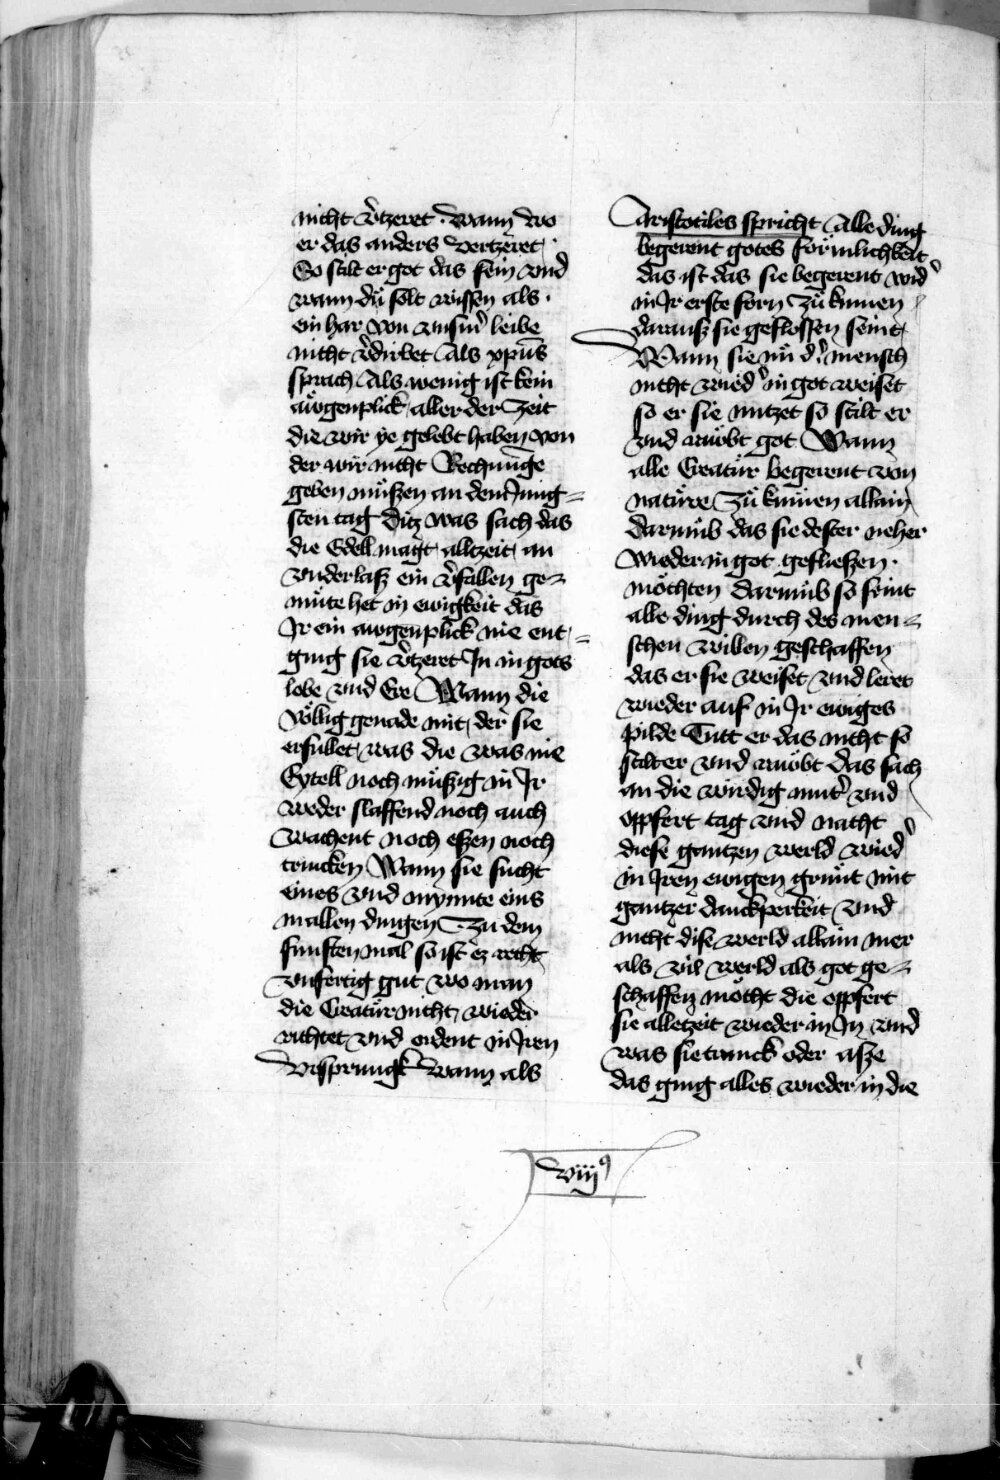 nicht v̾tzeret · Wann wo
er das anders vertzeret ·
So stilt er got das sein vnd
wann du solt wissen als ·
ein har von vnsm̾ leibe
nicht v̾dirbet Als xpūs
sprach Als wenig ist kein
augenplick aller der Zeit
die wir ye gelebt haben von
der wir nicht Rechnunge
geben müßen an dem Jung=
sten tag Ditz was sach das
die Edell magt alltzeit an
vnderlaß ein v̾fallen ge=
müte het in ewigkeit das
Jr ein awgenplick nie ent=
ging sie v̾tzeret Jn in gots
lobe vnd Ere Wann die
völlig genade mit der sie
erfullet was die was nie
Eytell noch müßig in Jr
weder slaffend noch auch
Wachent noch eßen noch
trincken Wann sie sucht
eines vnd mynnte eins
in allen dingen Zu dem
funften mal so ist ez recht
vnfertig gut wo man
die Creatür nicht wieder
richtet vnd ordent in Jren
Vrsprungk Wann als
Aristotiles spricht Alle ding
begerent gotes förmlichkeit
das ist das sie begerent wid̾
in Jr erste form zü kumen
darauß sie geflossen seint
Wann sie nü d̾ mensch
nicht wied̾ in got weiset
so er sie nutzet so stilt er
vnd raubt got Wann
alle Creatür begerent von
natüre Zü kumen allain
darumb das sie dester neher
Wieder in got gefließen ·
möchten darumb so seint
alle ding durch des men=
schen willen geschaffen
das er sie weiset vnd leret
wieder auf in Jr ewiges
pilde Tutt er das nicht so
stilt er vnd raubt das sach
an die wirdig mut̾ vnd
oppfert tag vnd nacht
diese gantzen werld wied̾
in Jren ewigen grunt mit
gantzer danckperkeit vnd
nicht dise werld allain mer
als vil werld als got ge=
schaffen möcht die oppfert
sie alletzeit wieder in Jn vnd
was sie trinck oder asze
das ging alles wieder in die
viijꝰ